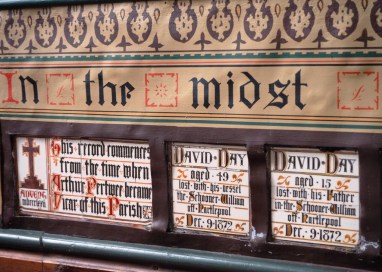 In the midst
ADVENT
This record commences
from the time when
Arthur Pertwee became
Vicar of this Parish
DAVID·DAY
aged·49
lost·with·his·vessel
the·Schooner·William
off·Hartlepool
Dec. 9·1872
DAVID·DAY
aged·15
lost·with·his·Father
in·the·Schooner·William
off·Hartlepool
Dec. 9·1872